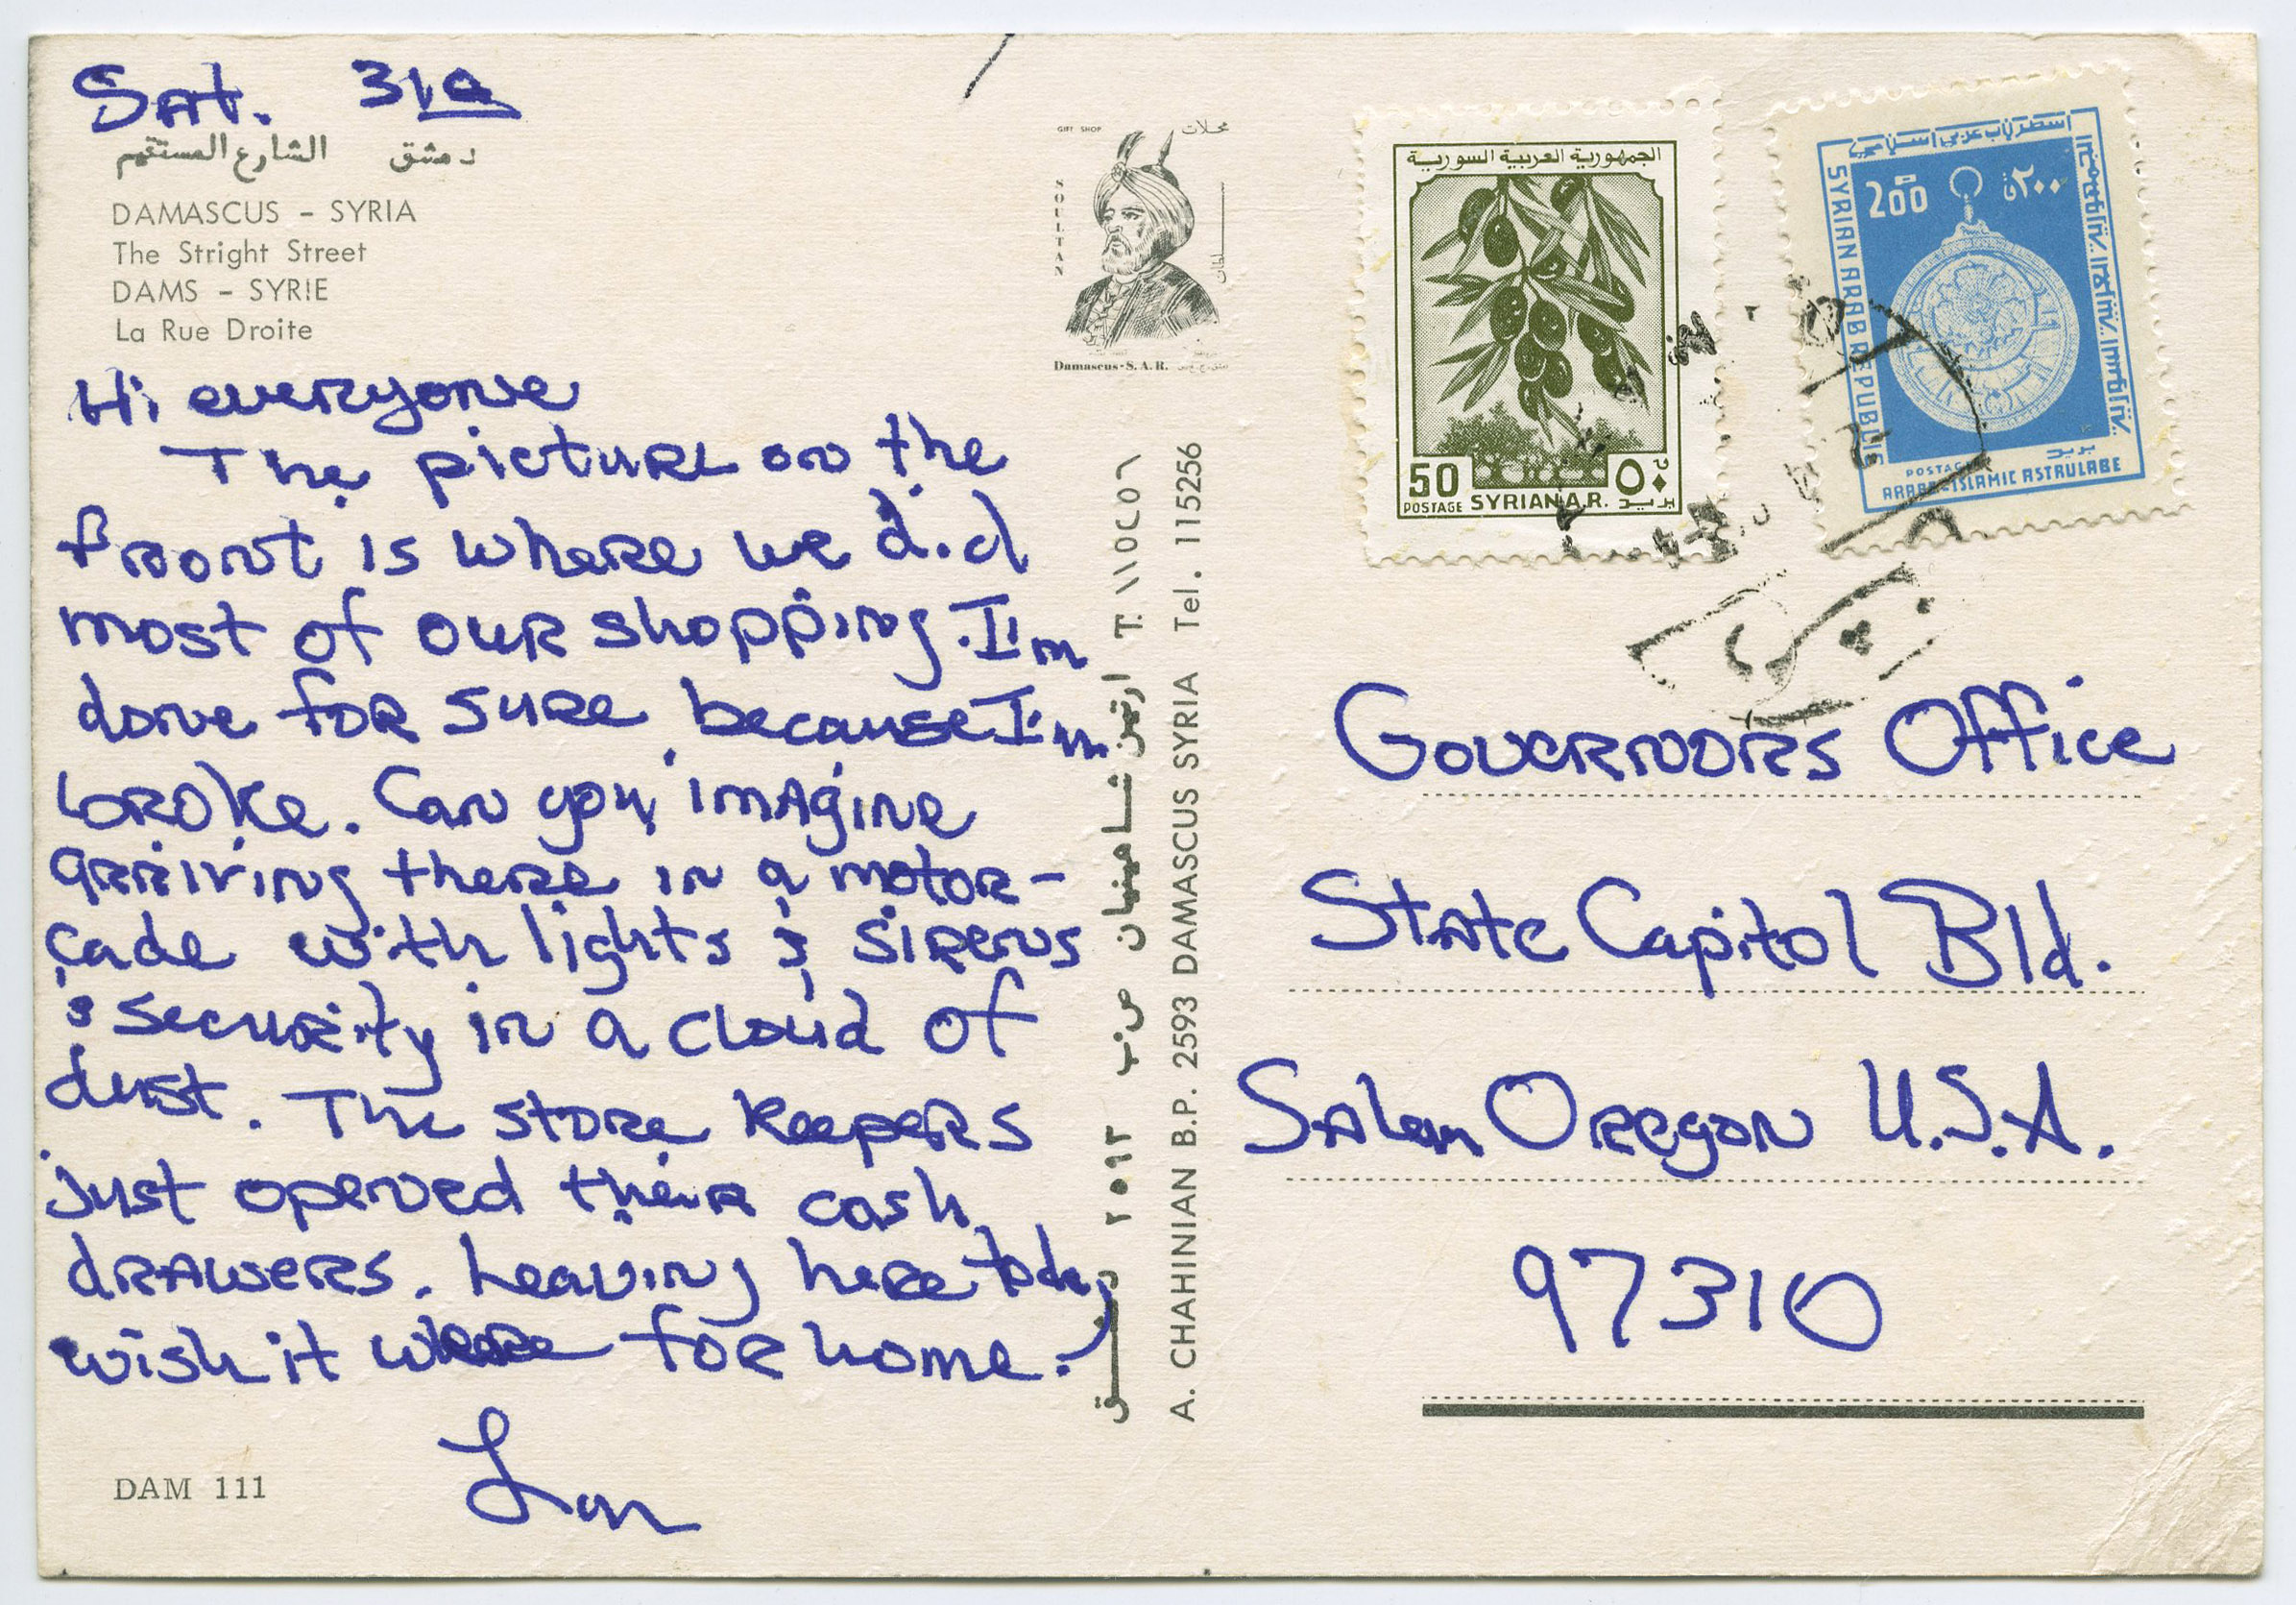 Sat. 31
الشارع المستقيم دمشق
DAMASCUS - SYRIA
The Stright Street
DAMS - SYRIE
La Rue Droite
Hi everyone
The picture on the
front is where we did
most of our shopping. I'm
done for sure, because I'm
broke. Can you imagine
arriving there in a motor-
cade with lights & sirens
& security in a cloud of
dust. The store keepers
just opened their cash
drawers. Leaving here today
wish it where for home.
DAM 111
GIFT SHOP محلات
SOULTAN
سلطان
Damascus-S.A.R.
ارتين شاهينيان ص.ب ٢٥٩٣ دمشق T. ١١٥٢٥٦
A. CHAHINIAN B.P. 2593 DAMASCUS SYRIA Tel. 115256
الجمهورية العربية السورية
50 ٥٠
POSTAGE SYRIAN A.R. بريد
200 ٢٠٠
SYRIAN ARAB REPUBLIC
POSTAGE بريد
ARABE-ISLAMIC ASTRULABE
Governors Office
State Capitol Bld.
Salem Oregon U.S.A.
97310